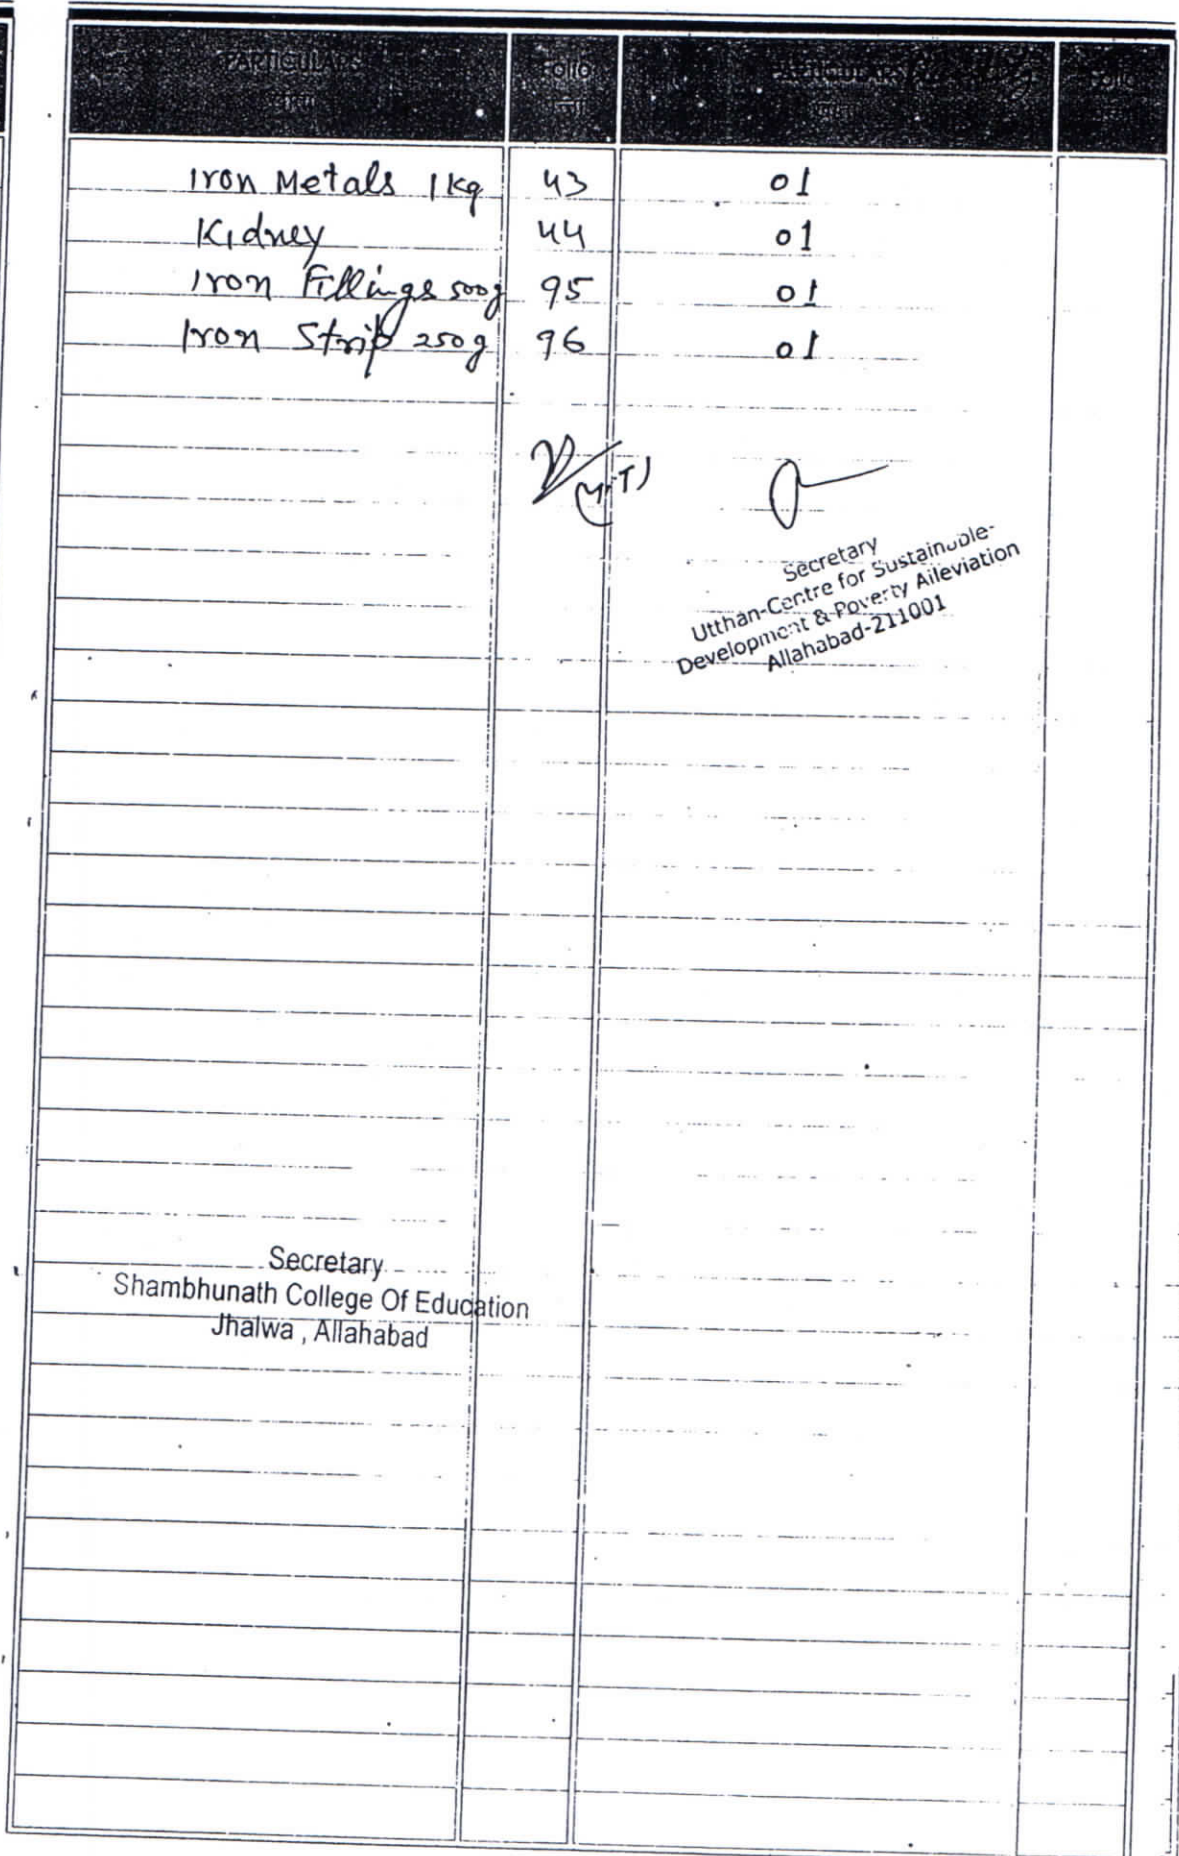 PARTICULARS Folio PARTICULARS Folio
Iron Metals 1 kg 43 01
Kidney 44 01
Iron Fillings 500g 95 01
Iron Strip 250g 96 01
Secretary
Utthan-Centre for Sustainable-
Development & Poverty Aileviation
Allahabad-211001
Secretary
Shambhunath College Of Education
Jhalwa , Allahabad